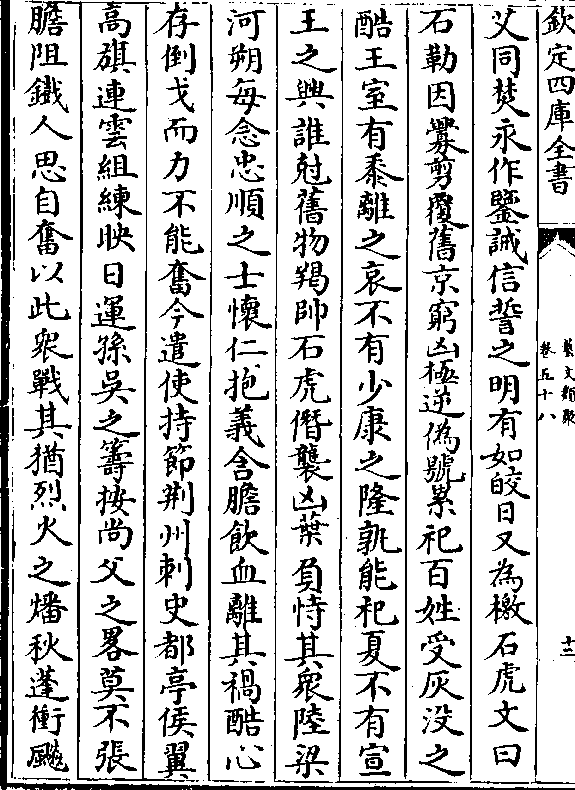 欽定四庫全書
藝文類聚
卷五十八
十三
艾同焚永作鑒誡信誓之明有如皎日又為檄石虎文曰
石勒因釁剪覆舊京窮凶極逆偽號累祀百姓受灰没之
酷王室有黍離之哀不有少康之隆孰能祀夏不有宣
王之興誰尅舊物羯帥石虎僭襲凶葉負恃其衆陸梁
河朔每念忠順之士懷仁抱義含膽飲血離其禍酷心
存倒戈而力不能奮今遣使持節荆州刺史都亭侯翼
高旗連雲組練映日運孫吳之籌按尚父之畧莫不張
膽阻鐵人思自奮以此衆戰其猶烈火之燔秋蓬衝飈